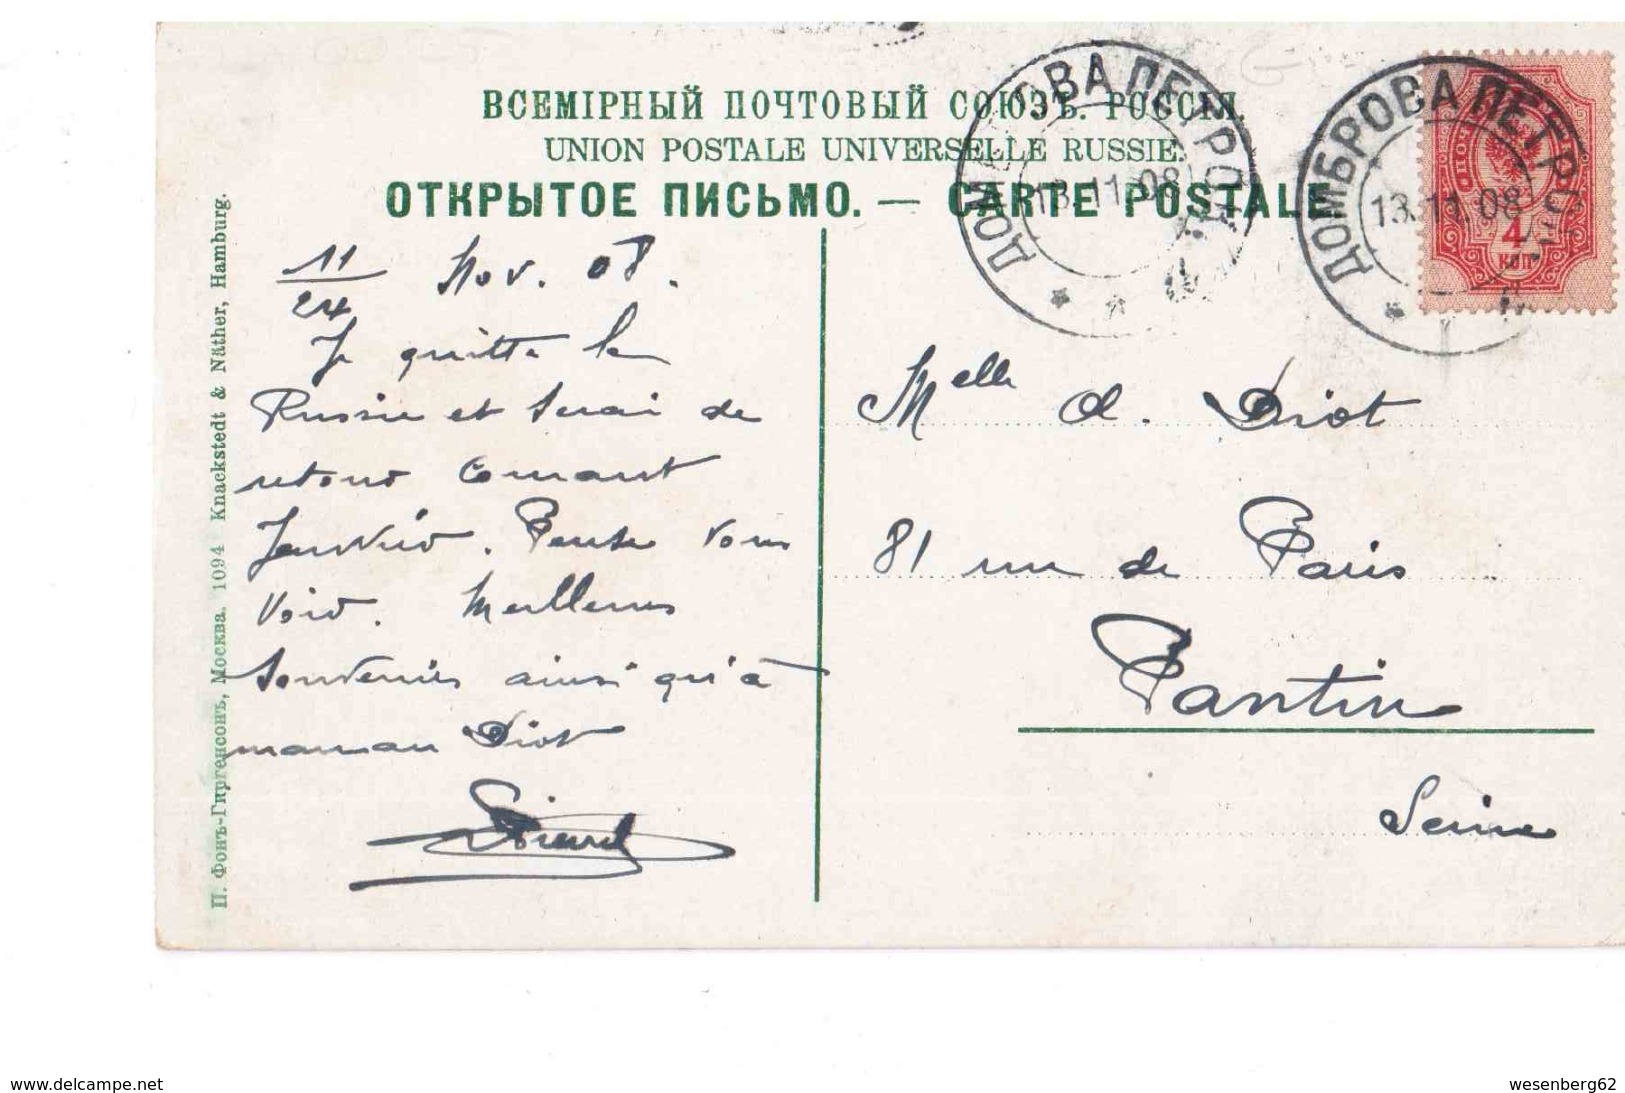 ВСЕМІРНЫЙ ПОЧТОВЫЙ СОЮЗЪ. РОССІЯ.
UNION POSTALE UNIVERSELLE RUSSIE.
ОТКРЫТОЕ ПИСЬМО. — CARTE POSTALE.
ДОМБРОВА ПЕТРОК
13.11.08
ДОМБРОВА ПЕТРОК
13.11.08
ПОЧТ
4
КОП
11/24 Nov. 08.
Je quitte la
Russie et serai de
retour Courant
Janvier. Pense vous
voir. Meilleurs
Souvenirs ainsi qu'à
maman Diot
Melle A. Diot
81 rue de Paris
Pantin
Seine
П. Фонъ-Гиргенсонъ, Москва. 1094 Knackstedt & Näther, Hamburg.
www.delcampe.net
wesenberg62